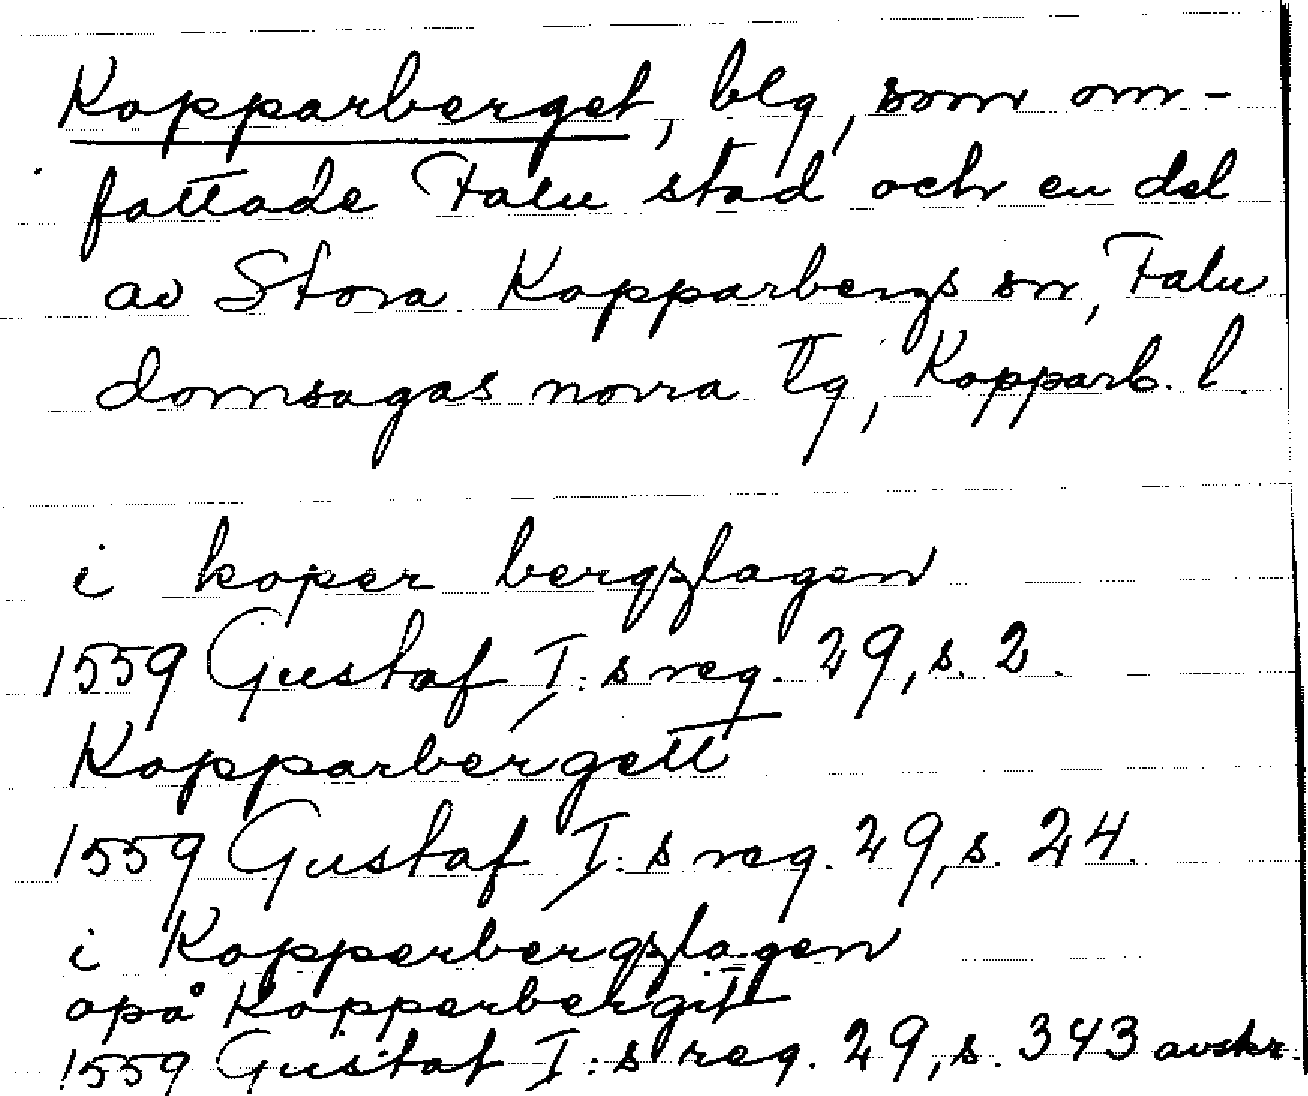 Kopparberget, blg, som om-
fattade Falu stad och en del
av Stora Kopparbergs sn, Falu
domsagas norra tg, Kopparb. l.
i koper bergzlagen
1559 Gustaf I:s reg. 29, s. 2.
Kopparbergett
1559 Gustaf I:s reg. 29, s. 24.
i Kopperbergzlagen
opå Kopperbergit
1559 Gustaf I:s reg. 29, s. 343 avskr.